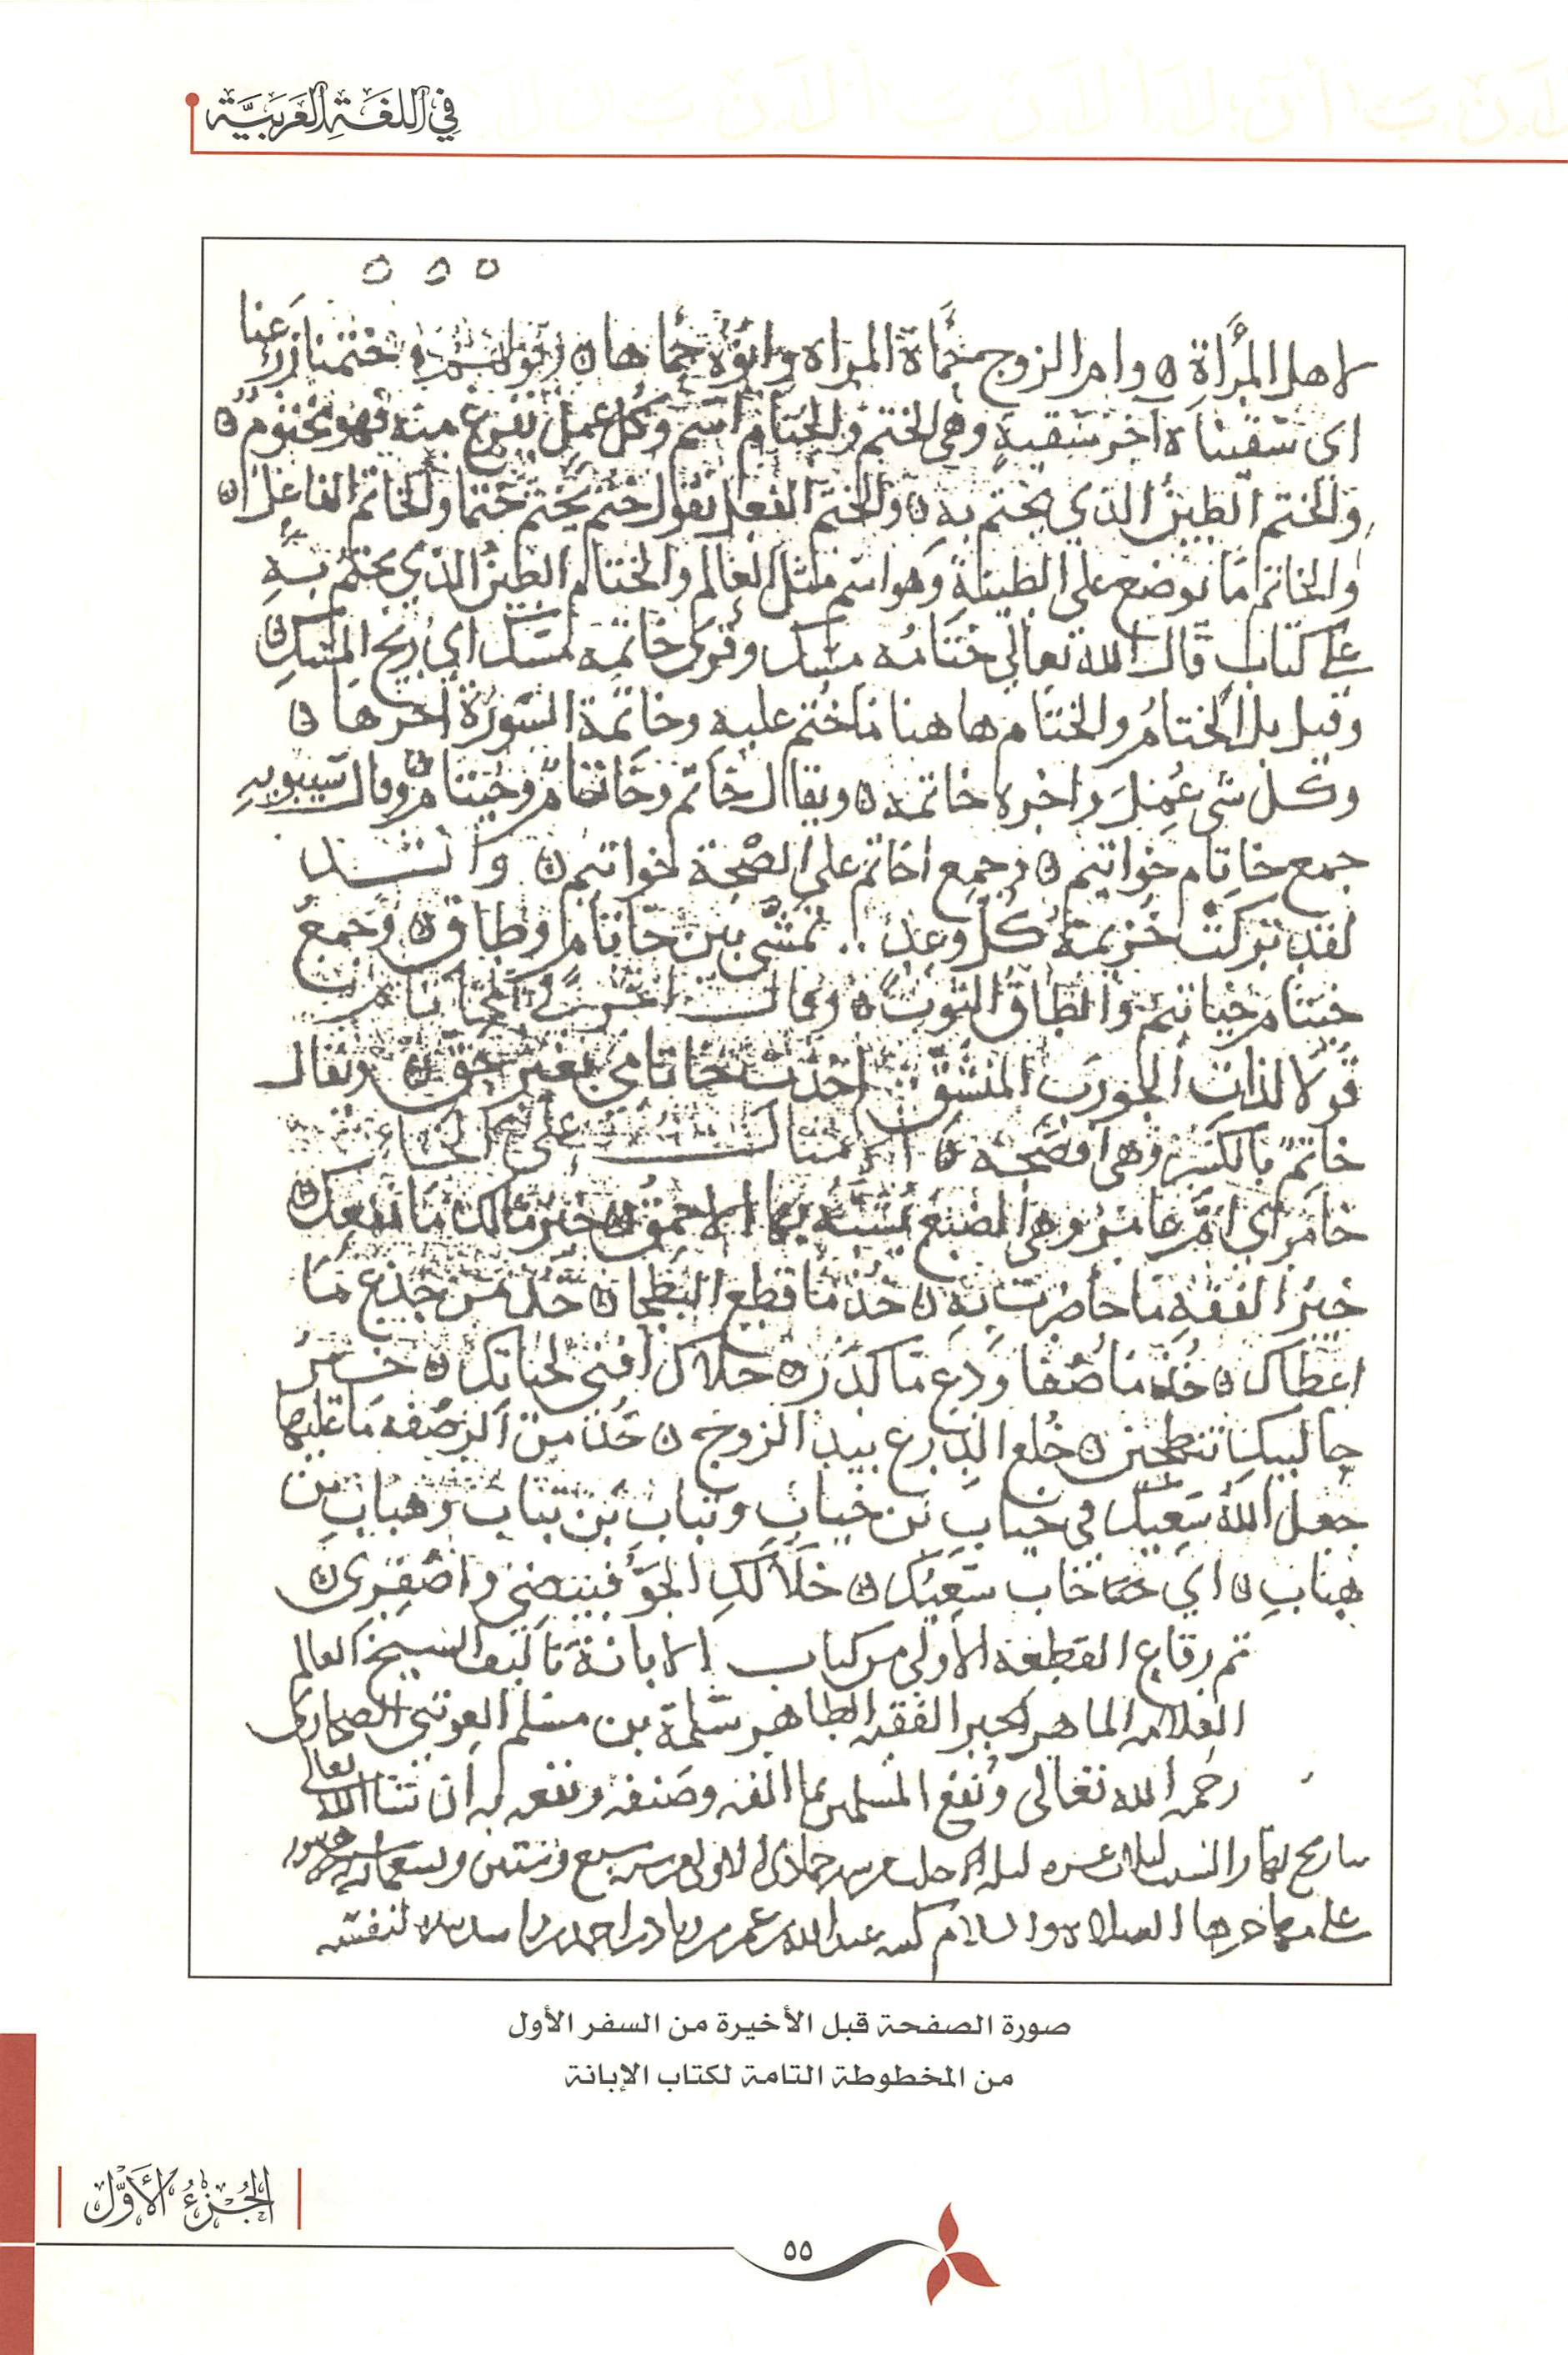 في اللغة العربية
لاهل المرأة ه وام الزوج حماة المراه وابوه حماها ه ختمنا زرعنا
اي سقيناه اخر سقيةٍ وهي الختم والختام اسم وكل عمل يفرغ منه فهو مختوم ه
والختم الطين الذي يختم به ه والختم الفعل تقول ختم يختم ختما والخاتم الفاعل ه
والخاتم ما يوضع على الطينة وهو اسم مثل العالم والختام الطين الذي يختم به
على كتاب قال الله تعالى ختامه مسك وقرى خاتمه مسك اي ريح المسك ه
وقيل بل الختام والختام هاهنا ما ختم عليه وخاتمة السورة اخرها ه
وكل شي عمل واخره خاتمه ه ويقال خاتم وخاتام وخيتام وقال سيبويه
جمع خاتام خواتيم ه وجمع خاتم على الصحة خواتم ه وانشد
لقد تركت خزيمة كل وغد ∴ تمشي بين خاتام وطاق ه وجمع
خيتام خياتيم والطاق الثوب ه وقال اخر في الخاتام
قولا لذات الجورب المنشق اخذت خاتامي بغير حق ه ويقال
خاتم بالكسر وهي افصحه ه الامثال على الخاء
خامري ام عامر وهي الضبع يشبه بها الاحمق ه خير مالك ما نفعك ه
خير الفقه ما حاضرت به ه خذ ما قطع البطحا ه خذ من جذع ما
اعطاك ه خذ ما صفا ودع ما كدر ه خلاك افنى لحيائك ه خير
حالبيك تنطحين ه خلع الدرع بيد الزوج ه خذ من الرضفه ما عليها
جعل الله سعيك في خياب بن خياب وتباب بن تباب وهباب بن
هباب ه اي خاب سعيك ه خلا لك الجو فبيضي واصفري ه
تم رقاع القطعة الاولى من كتاب الابانة تاليف الشيخ العالم
العلامه الماهر الحبر الفقيه الطاهر سلمة بن مسلم العوتبي الصحاري
رحمه الله تعالى ونفع المسلمين بما الفه وصنفه ونفعه به ان شا الله تعالى
جمادى الاولى سبع وستين وتسعمايه
على الصلاه والسلام كتبه عبدالله عمر بن زياد بن احمد لنفسه
صورة الصفحة قبل الأخيرة من السفر الأول
من المخطوطة التامة لكتاب الإبانة
الجزء الأول
٥٥